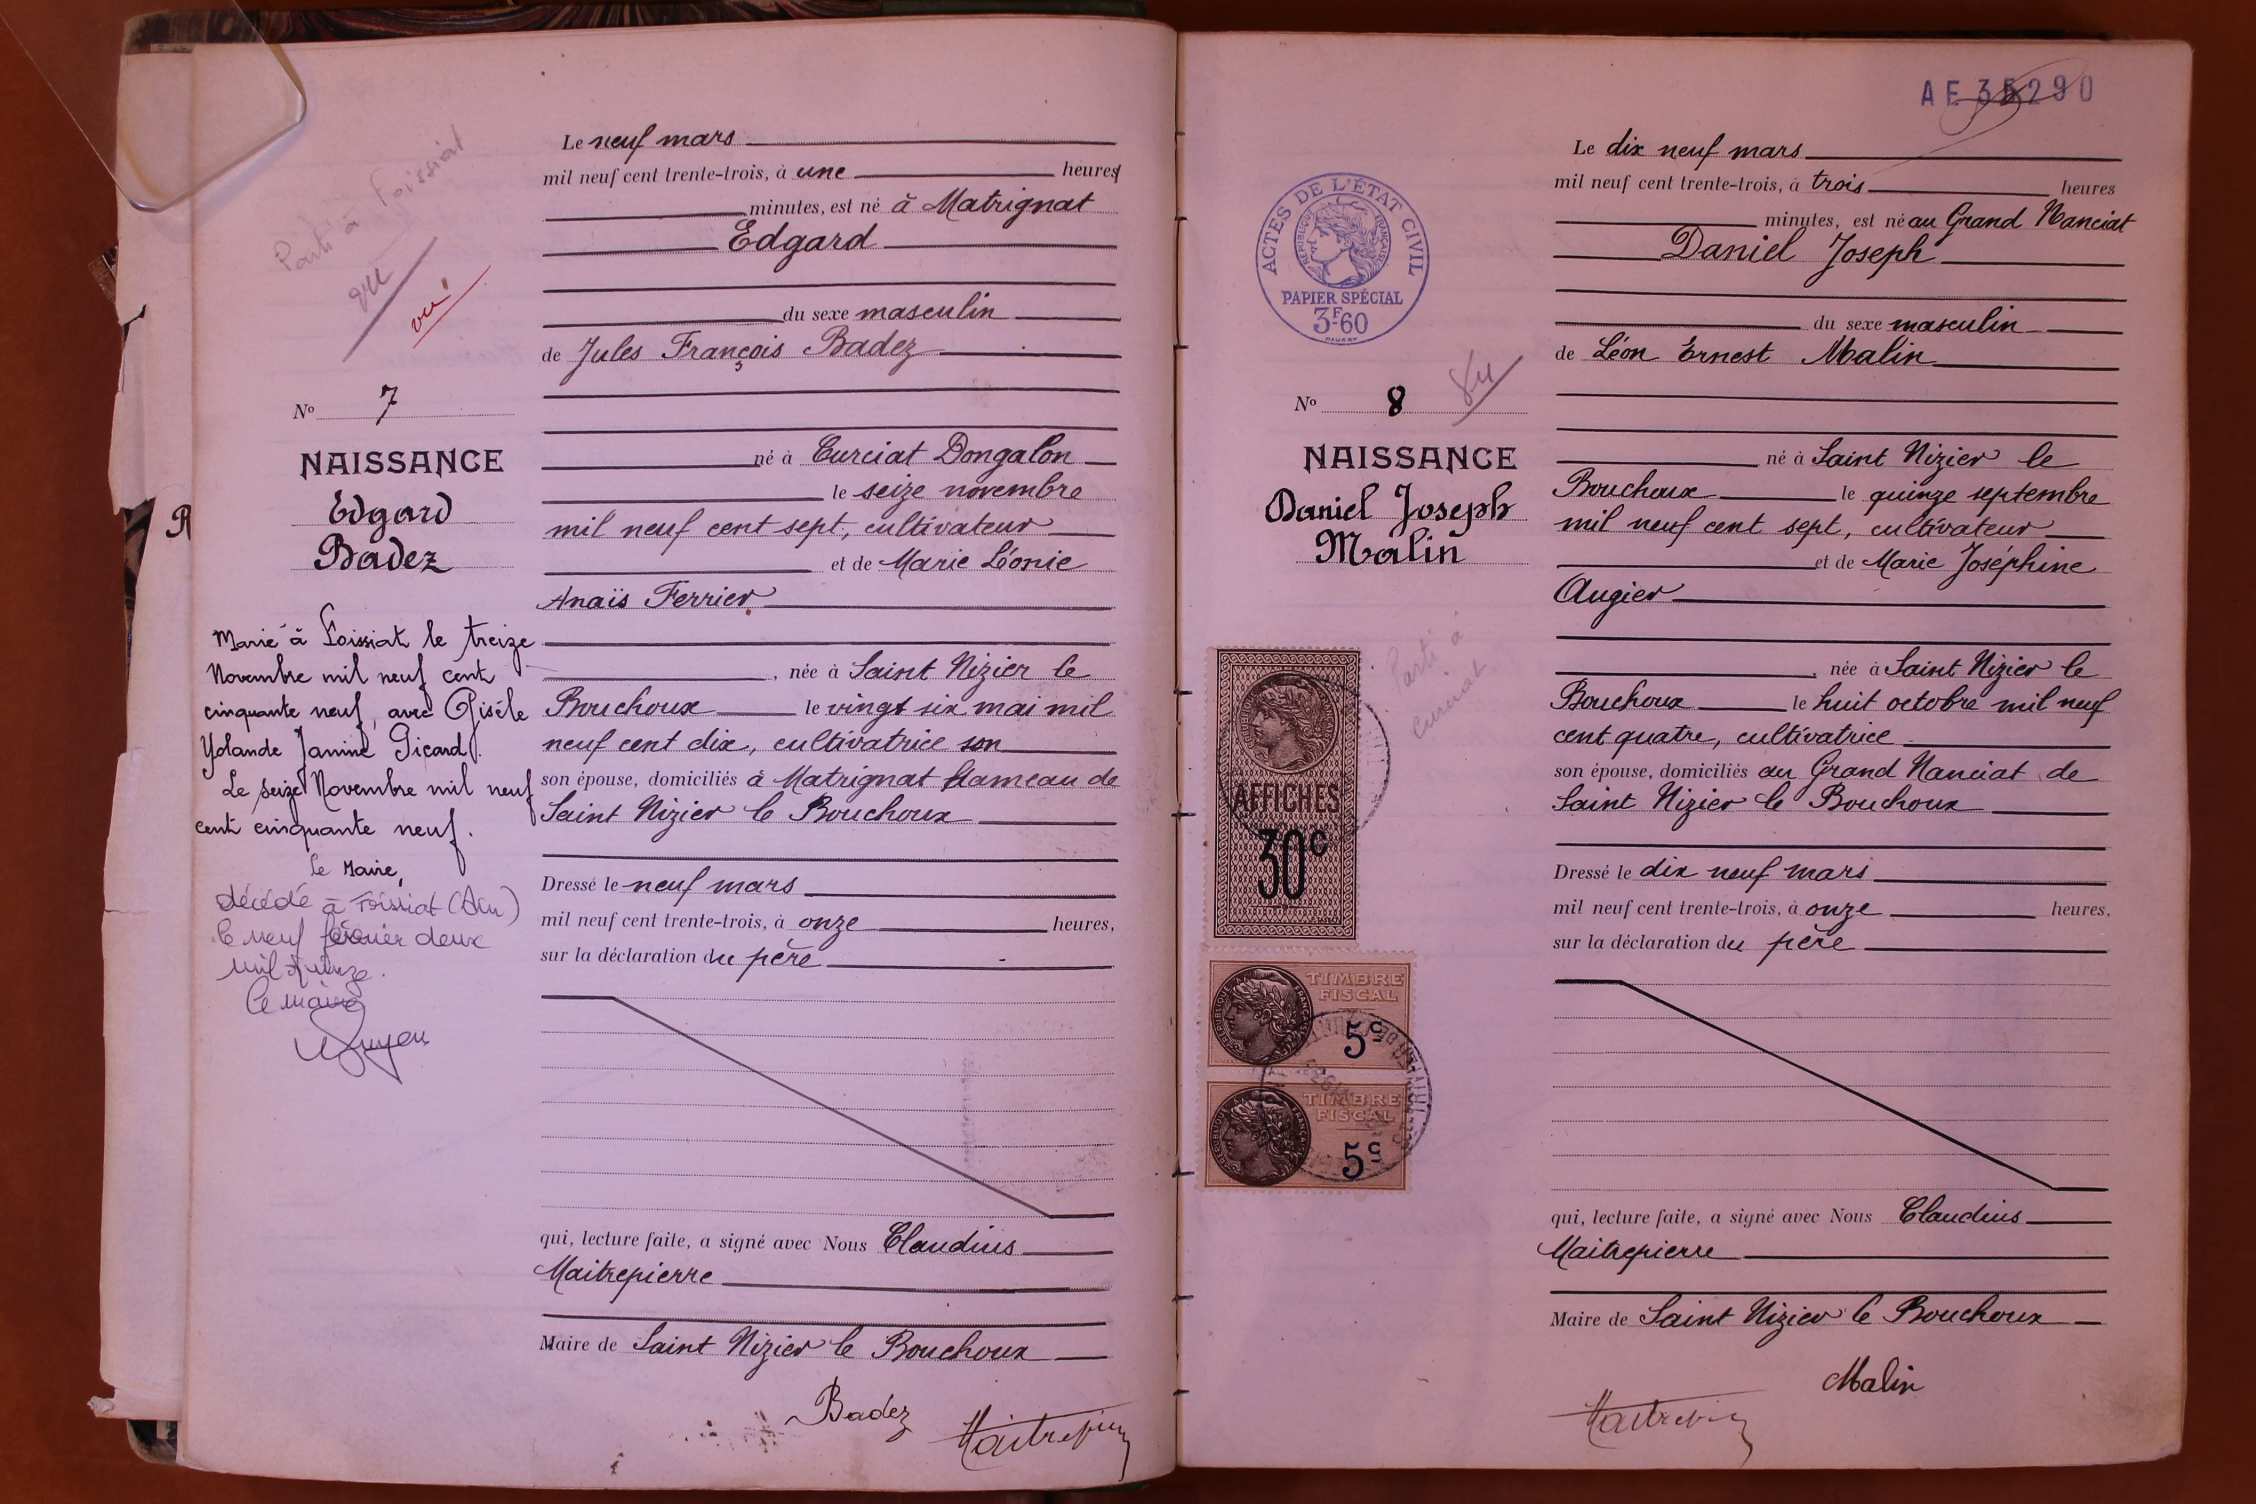 Parti à Foissiat
vu
vu
Nº 7
NAISSANCE
Edgard
Badez
Marié à Foissiat le treize
Novembre mil neuf cent
cinquante neuf, avec Gisèle
Yolande Janine Picard.
Le seize Novembre mil neuf
cent cinquante neuf.
Le Maire,
décédé à Foissiat (Ain)
le neuf février deux
mil quinze.
Le maire
R
Le neuf mars
mil neuf cent trente-trois, à une heures
minutes, est né à Matrignat
Edgard
du sexe masculin
de Jules François Badez
né à Curciat Dongalon
le seize novembre
mil neuf cent sept, cultivateur
et de Marie Léonie
Anaïs Ferrier
, née à Saint Nizier le
Bouchoux le vingt six mai mil
neuf cent dix, cultivatrice son
son épouse, domiciliés à Matrignat hameau de
Saint Nizier le Bouchoux
Dressé le neuf mars
mil neuf cent trente-trois, à onze heures,
sur la déclaration du père
qui, lecture faite, a signé avec Nous Claudius
Maitrepierre
Maire de Saint Nizier le Bouchoux
Badez Maitrepierre
AE 35290
ACTES DE L'ÉTAT CIVIL
RÉPUBLIQUE FRANÇAISE
PAPIER SPÉCIAL
3F60
Nº 8
NAISSANCE
Daniel Joseph
Malin
Parti à
curciat
AFFICHES
30c
TIMBRE
FISCAL
5c
TIMBRE
FISCAL
5c
Le dix neuf mars
mil neuf cent trente-trois, à trois heures
minutes, est né au Grand Nanciat
Daniel Joseph
du sexe masculin
de Léon Ernest Malin
né à Saint Nizier le
Bouchoux le quinze septembre
mil neuf cent sept, cultivateur
et de Marie Joséphine
Augier
, née à Saint Nizier le
Bouchoux le huit octobre mil neuf
cent quatre, cultivatrice
son épouse, domiciliés au Grand Nanciat de
Saint Nizier le Bouchoux
Dressé le dix neuf mars
mil neuf cent trente-trois, à onze heures,
sur la déclaration du père
qui, lecture faite, a signé avec Nous Claudius
Maitrepierre
Maire de Saint Nizier le Bouchoux
Malin
Maitrepierre